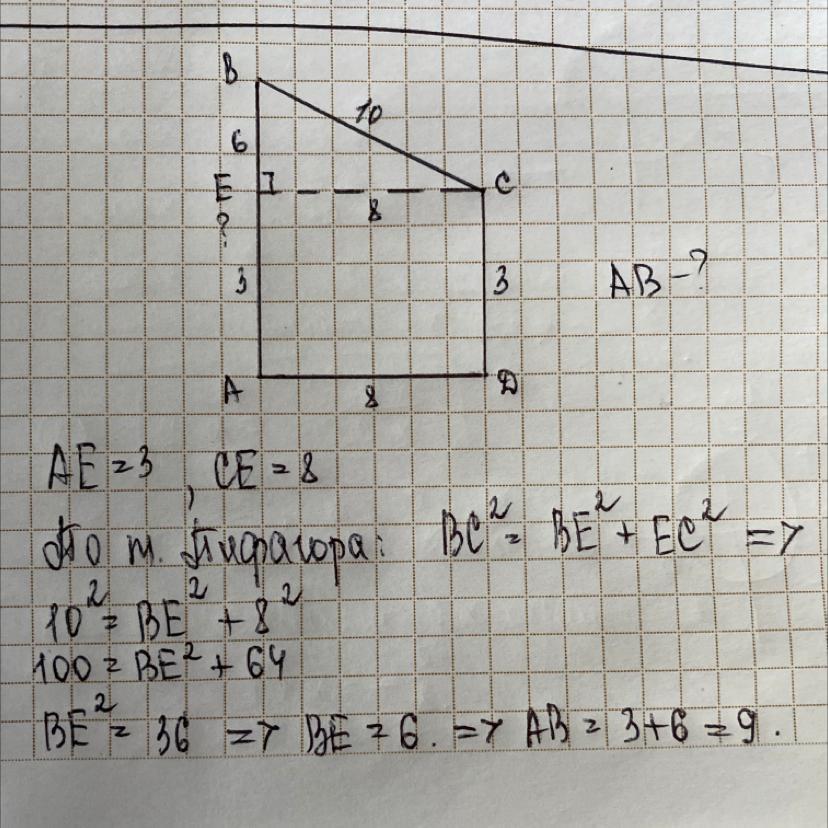 B
10
6
E
C
8
?
3
3
AB - ?
A
D
8
AE = 3, CE = 8
По т. Пифагора: BC² = BE² + EC² =>
10² = BE² + 8²
100 = BE² + 64
BE² = 36 => BE = 6. => AB = 3+6 = 9.